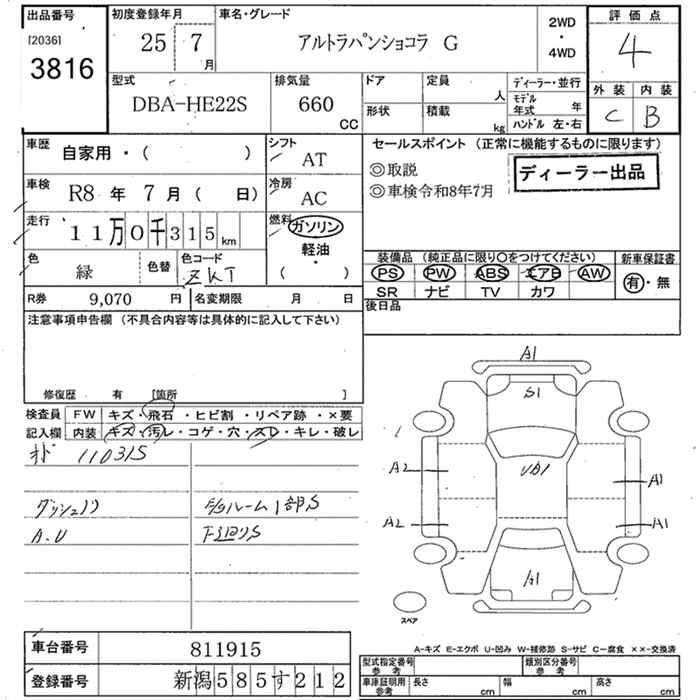 出品番号 初度登録年月 車名・グレード 評価点
[2036] 25 年 7 月 アルトラパンショコラ G 2WD・4WD 4
3816
型式 排気量 ドア 定員 ディーラー・並行 外装 内装
DBA-HE22S 660 CC 人 モデル年式 年 C B
形状 積載 kg ハンドル 左・右
車歴 自家用・( ) シフト AT セールスポイント (正常に機能するものに限ります)
車検 R8 年 7 月 ( 日) 冷房 AC ◎取説 ディーラー出品
◎車検令和8年7月
走行 11万0千315 km 燃料 ガソリン
軽油・
( )
色 緑 色替 色コード ZKT
装備品 (純正品に限り○をつけてください) 新車保証書
PS PW ABS エアB AW 有・無
SR ナビ TV カワ
R券 9,070 円 名変期限 月 日 後日品
注意事項申告欄 (不具合内容等は具体的に記入して下さい)
修復歴 有 [箇所 ]
検査員 FW キズ・飛石・ヒビ割・リペア跡・×要
記入欄 内装 キズ・汚レ・コゲ・穴・スレ・キレ・破レ
110315
A.U 下廻りS
A1
S1
A2 A1
A2 A1
A1
スペア
車台番号 811915
登録番号 新潟585す212
A-キズ E-エクボ U-凹み W-補修跡 S-サビ C-腐食 ××-交換済
型式指定番号 参考 類別区分番号 参考
車庫証明用 参考 長さ cm 幅 cm 高さ cm